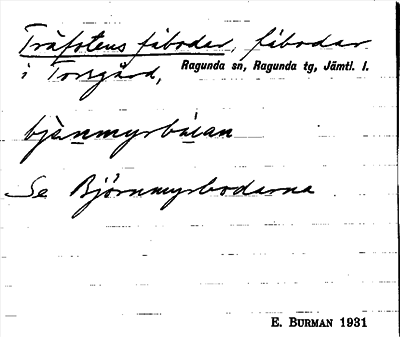 Träfotens fäbodar, fäbodar
i Torsgård, Ragunda sn, Ragunda tg, Jämtl. l.
bjènmyrbùian
Se Björnmyrbodarna
E. BURMAN 1931